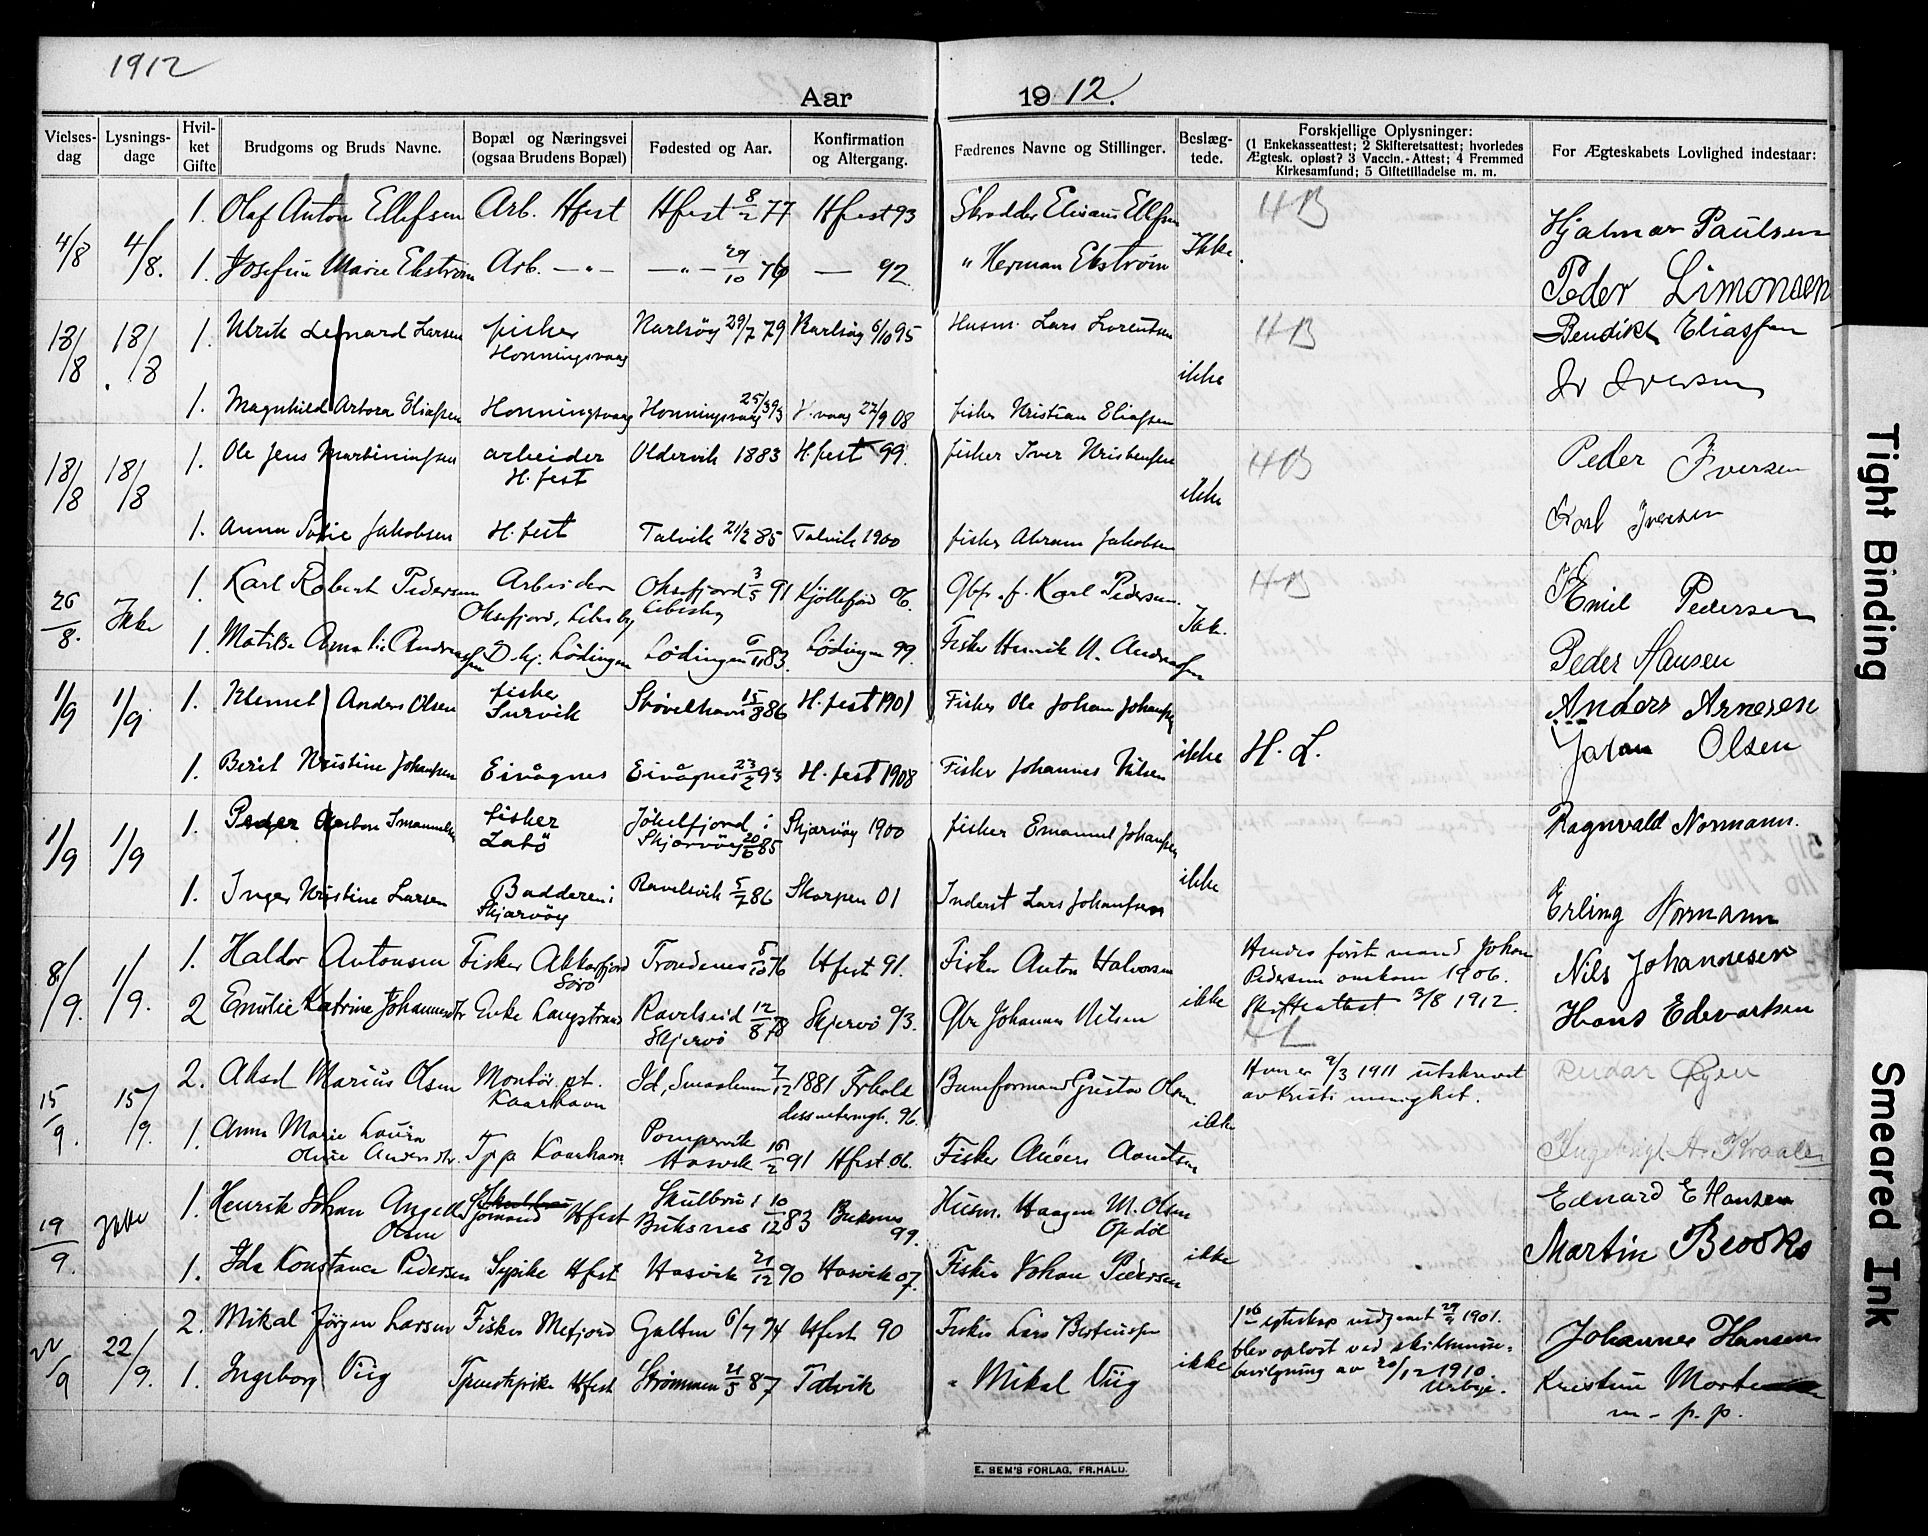 1912
Aar 1912.
Vielses-dag
Lysnings-dage
Hvil-ket Gifte
Brudgoms og Bruds Navne.
Bopæl og Næringsvei (ogsaa Brudens Bopæl)
Fødested og Aar.
Konfirmation og Altergang.
Fædrenes Navne og Stillinger.
Beslæg-tede.
Forskjellige Oplysninger:
(1 Enkekasseattest; 2 Skifteretsattest; hvorledes Ægtesk. opløst? 3 Vaccin.-Attest; 4 Fremmed Kirkesamfund; 5 Giftetilladelse m. m.
For Ægteskabets Lovlighed indestaar:
4/8 4/8. 1. Olaf Anton Ellefsen Arb. Hfest Hfest 8/2 77 Hfest 93 Skrædder Elisæus Ellefsen Ikke. HB Hjalmar Paulsen
1. Josefine Marie Ekstrøm Arb. —"— —"— 29/10 76 — 92 " Herman Ekstrøm Peder Simonsen
18/8 18/8 1. Ulrik Leonard Larsen fisker Honningsvaag Karlsöy 29/7 79 Karlsöy 6/10 95 Husm. Lars Lorentsen ikke HB Bendikt Eliassen
1. Magnhild Arbora Eliassen Honningsvaag Honningsvaag 25/3 93 H.vaag 27/9 08 fisker Kristian Eliassen Iv Iversen
18/8 18/8 1. Ole Jens Martiniussen arbeider H.fest Oldervik 1883 H.fest 99. fisker Iver Kristensen ikke HB Peder Iversen
1. Anna Sofie Jakobsen H.fest Talvik 21/2 85 Talvik 1900 fisker Abram Jakobsen Karl Iversen
26/8. Ikke 1. Karl Robert Pedersen Arbeider Oksefjord, Lebesby Oksefjord 3/5 91 Lebesby Kjøllefjord 06. Gbr. f. Karl Pedersen Ikk. HB Emil Pedersen
1. Matilde Amalie Andreassen D hj. Lödingen Lödingen 6/11 83. Lödingen 99. Fisker Henrik A. Andreassen Peder Hansen
1/9 1/9 1. Klemet Anders Olsen fisker Survik Støvelhavn 15/8 86 H.fest 1901 Fisker Ole Johan Johansen ikke H. L. Anders Arnesen
1. Berit Kristine Johansen Eivågnes Eivågnes 23/2 93 H.fest 1908 Fisker Johannes Nilsen Johan Olsen
1/9 1/9 1. Peder Anton Emanuelsen fisker Latö Jökelfjord i Skjærvöy 20/6 85 Skjærvöy 1900 fisker Emanuel Johansen ikke Ragnvald Normann.
1. Inger Kristine Larsen Badderen i Skjærvöy Ravelsvik 5/7 86 Skorpen 01 Inderst Lars Johansen Erling Normann
8/9. 1/9. 1. Haldor Antonsen Fisker Akkarfjord Sörö Trondenes 5/10 76 Hfest 91. Fisker Anton Halvorsen ikke Hendes förste mand Johan Pedersen omkom 1906. Skifteattest 3/8 1912. HL Nils Johannesen
2 Emilie Katrine Johannesdtr Enke Langstrand Ravelseid 12/8 78 Skjervö Skjervö 93. Gbr Johannes Nilsen Hans Edvartsen
15/9. 15/9. 2. Aksel Marius Olsen Montör. pt. Kaarhavn Id, Smaalenene 7/12 1881 Frhald 96. Baneformand Gustav Olsen ikke Han er 9/3 1911 utskrevet av Kristi menighet.
1. Anna Marie Laura Oline Andersdtr. Tjp Kaarhavn Hasvik 16/2 91 Hfest. 06. Fisker Anders Arntsen
19/9. Ikke 1. Henrik Johan Angell Olsen Sjømand Hfest Skulbru i Buksnes 10/12 83 Buksnes 99. Husm. Haagen M. Olsen Opdøl ikke Edvard E Hansen
1. Ida Konstance Pedersen Sypike Hfest Hasvik 21/12 90 Hasvik 07. Fisker Johan Pedersen Martin Brooks
22/9 22/9. 2. Mikal Jörgen Larsen Fisker Mefjord Galten 6/7 74 Hfest 90 Fisker Lars Bertinssen ikke 1ste egteskap indgaaet 29/9 1901. blev oplöst ved skilsmissebevilgning av 20/12 1910 Johannes Hansen
1. Ingeborg Viig Tjenestepike Hfest Strömmen 21/5 87 Talvik " Mikal Viig Kristine Mortensen
m. p. p.
E. SEM'S FORLAG, FR.HALD.
Tight Binding
Smeared Ink